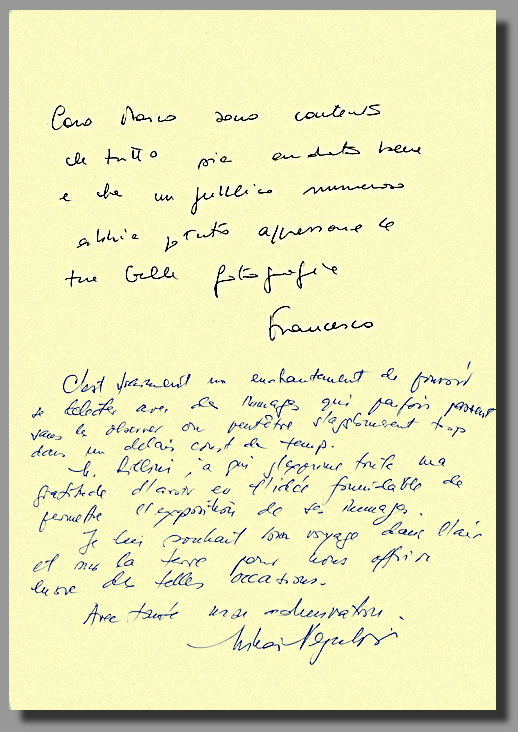 Caro Marco sono contento
che tutto sia andato bene
e che un pubblico numeroso
abbia potuto apprezzare le
tue belle fotografie
Francesco
C'est vraiment un enchantement de pouvoir
se délecter avec des images qui parfois passent
sans les observer ou peutêtre s'agglomerent trop
dans un délais court du temp.
M. , a qui j'exprime toute ma
gratitude d'avoir eu l'idée formidable de
permettre l'exposition de ses images.
Je lui souhait bon voyage dans l'air
et sur la terre pour nous offrir
encore des telles occasions.
Avec toute mon admiration.
Mihai